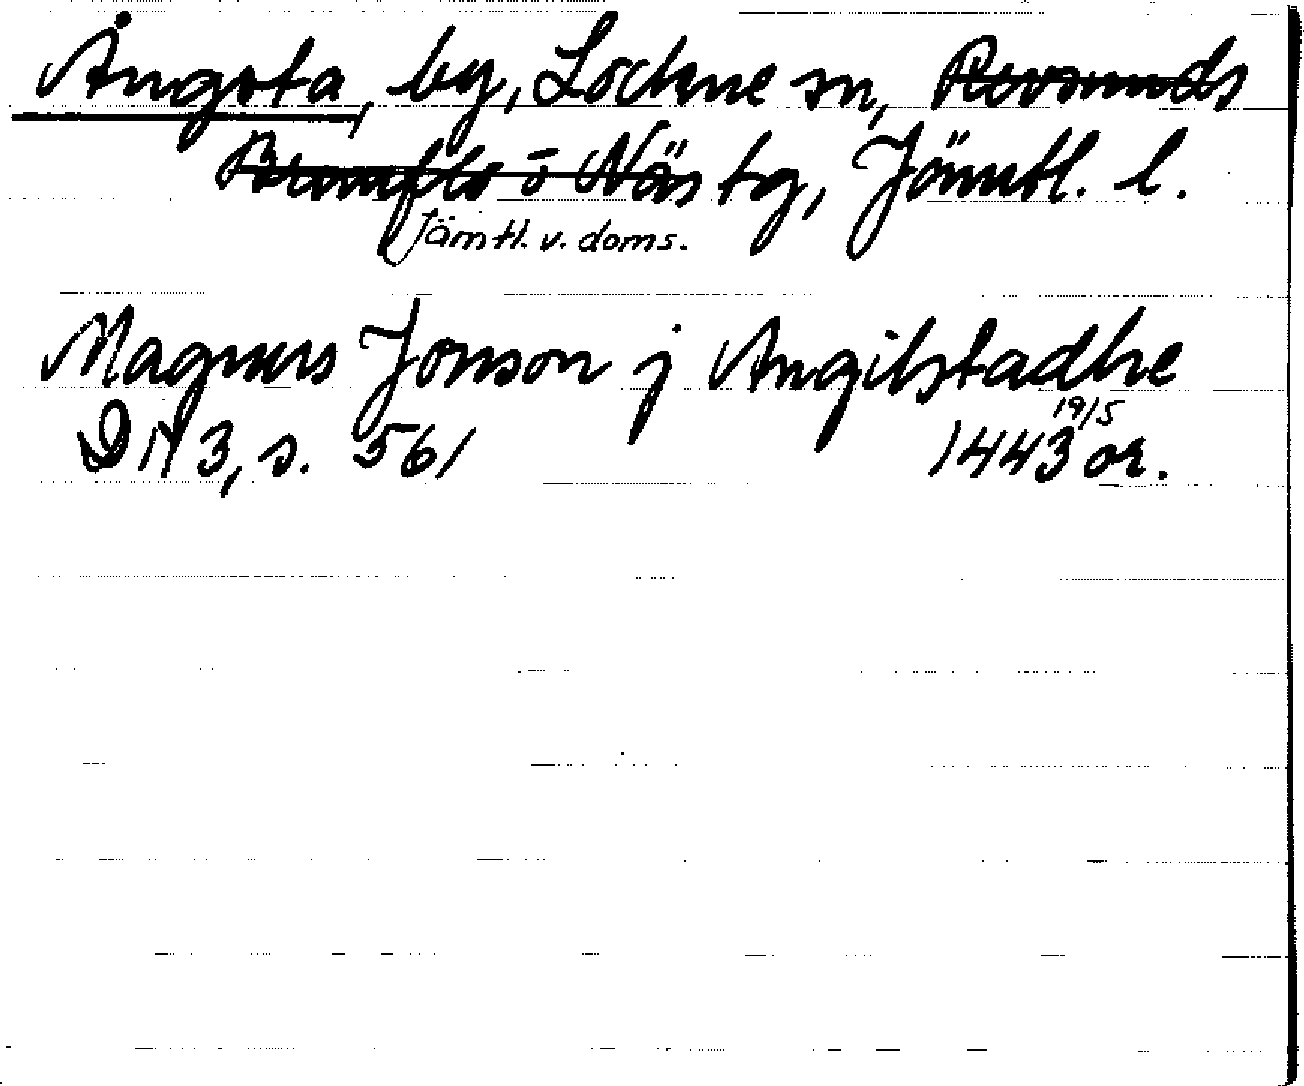 Ångsta, by, Lockne sn, Revsunds
Brunflo o Näs tg, Jämtl. l.
Jämtl. v. doms.
Magnus Jonson j Angilstadhe
19/5
DN 3, s. 561 1443 or.